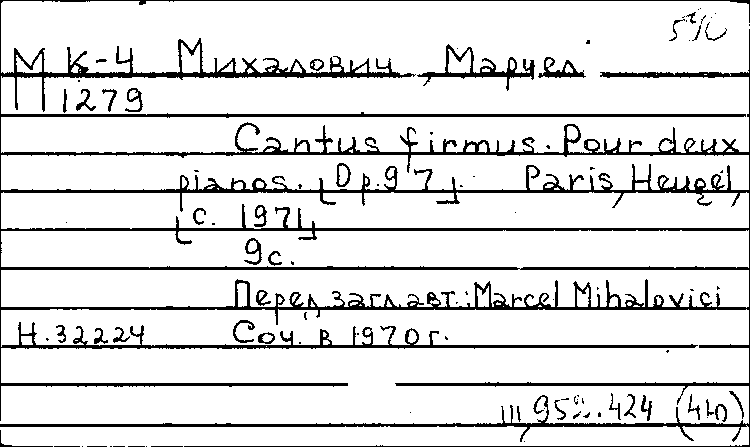 М К-4 Михалович, Марцел
1279
Cantus firmus. Pour deux
pianos. [Op.97]. Paris, Heugel,
[c. 1971]
9с.
Перед загл. авт.: Marcel Mihalovici
Н.32224 Соч. в 1970 г.